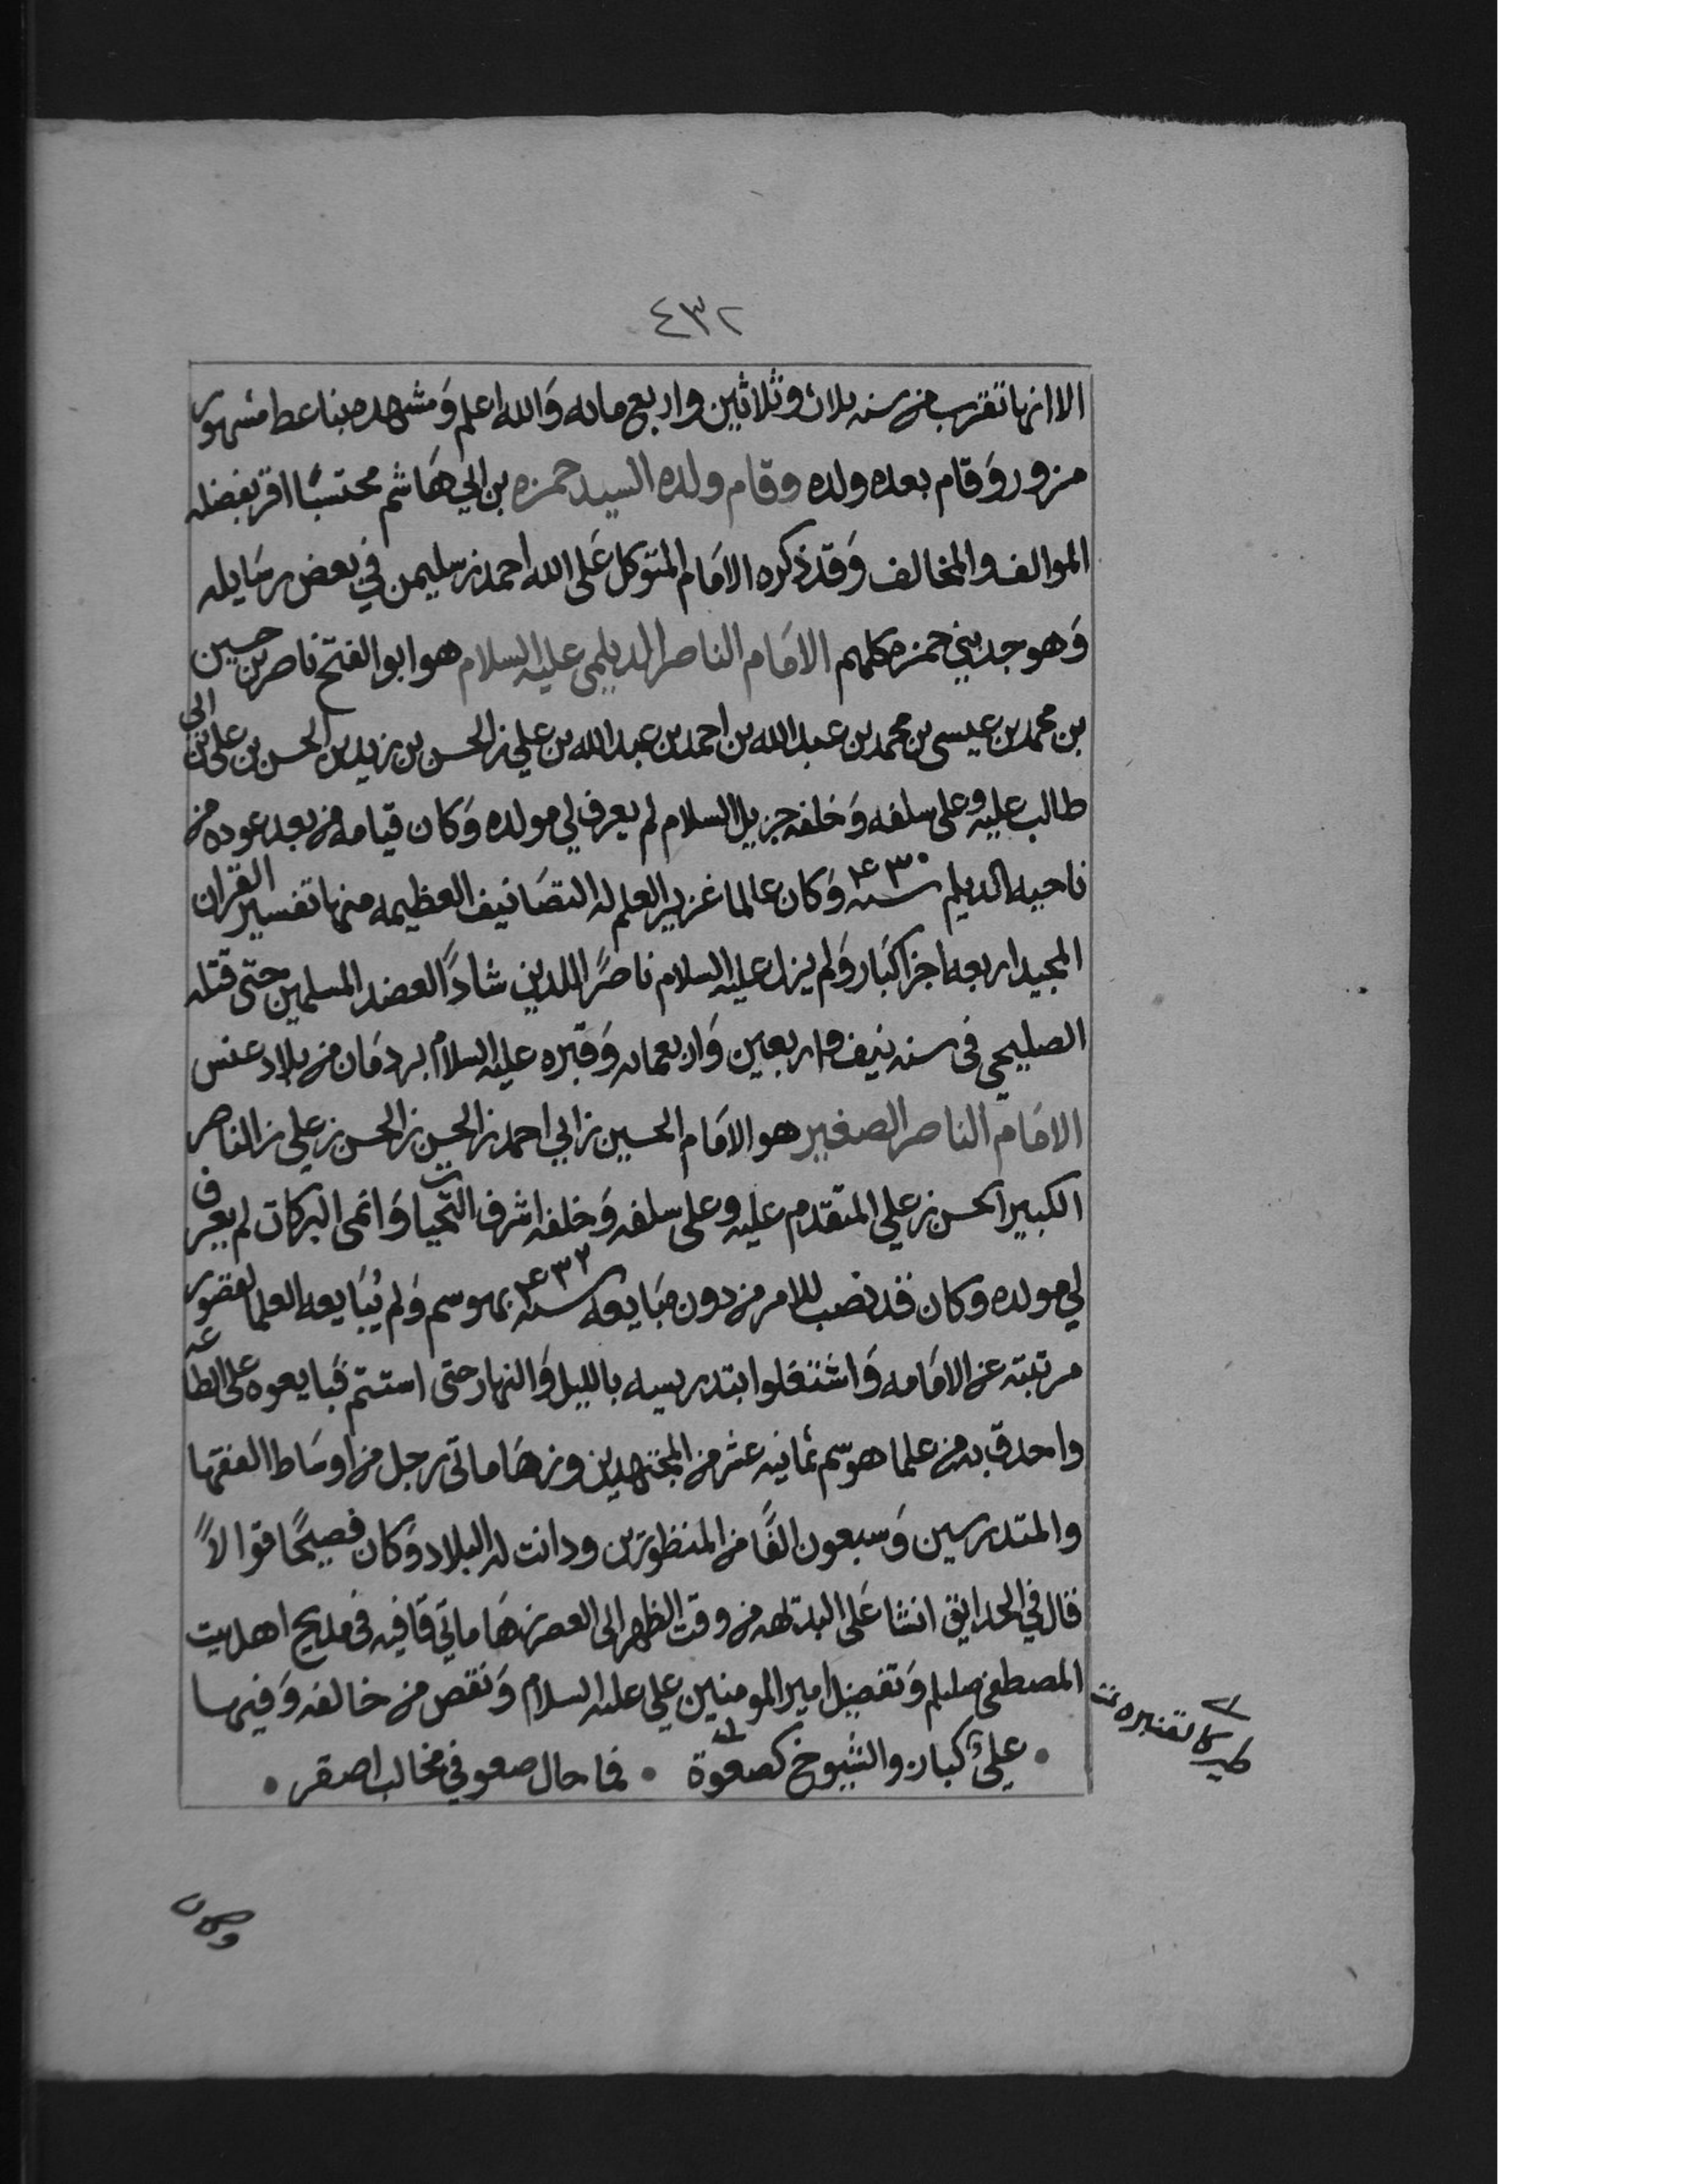 ٤٣٢
الا انها تقرب من سنه ثلاث وثلاثين واربع مائه وَالله اعلم وَمشهده بناعط مشهور
مزور وَقام بعده ولده وقام ولده السيد حمزه بن ابي هَاشم محتسبًا اقر بفضله
الموالف والمخالف وَقد ذكره الامَام المتوكل عَلى الله احمد بن سليمن في بعض رسَايله
وَهو جد بني حمزه كلهم الامَام الناصر الديلمي عليه السلام هو ابو الفتح ناصر بن حسين
بن محمد بن عيسى بن محمد بن عبد الله بن احمد بن عبد الله بن علي بن الحسن بن زيد بن الحسن بن علي بن ابي
طالب عليه وعلى سلفه وَخلفه جزيل السلام لم يعرف لي مولده وَكان قيامه من بعد عوده من
ناحيه الديلم سنه ٤٣٠ وَكان عالما غزير العلم له التصَانيف العظيمه منها تفسير القران
المجيد اربعه اجزا كبَار وَلم يزل عليه السلام ناصرًا للدين شادًا لعضد المسلمين حتى قتله
الصليحي فى سنه نيف واربعين وَاربعمائه وَقبره عليه السلام بردمَان من بلاد عنس
الامَام الناصر الصغير هو الامَام الحسين بن ابي احمد بن الحسين بن الحسن بن علي بن الناصر
الكبير الحسن بن علي المتقدم عليه وعلى سلفه وَخلفه اشرف التحيات وَانمى البركات لم يعرف
لي مولده وكان قد نصب للامر من دون مبَايعه سنه ٤٣٢ بهوسم وَلم يُبَايعه العلما لقصور
مرتبته عن الامَامه وَاشتغلوا بتدريسه بالليل وَالنهار حتى استتم فبَايعوه على الطاعه
واحدق به من علما هوسم ثمانيه عشر من المجتهدين وزهَا ماتي رجل من اوسَاط الفقها
والمتدرسين وَسبعون الفًا من المنظورين ودانت له البلاد وَكان فصيحًا قوالاً
قال في الحدايق انشا عَلى البديهه من وقت الظهر الى العصر زهَا ماتي قافيه فى مديح اهل بيت
المصطفى صللم وَتفضيل امير المومنين علي عليه السلام وَنقص من خالفه وَفيها
• عليٌ كباز والشيوخ كصعوة • فما حال صعو في مخالب اصقر •
طير كالقنبره تمت